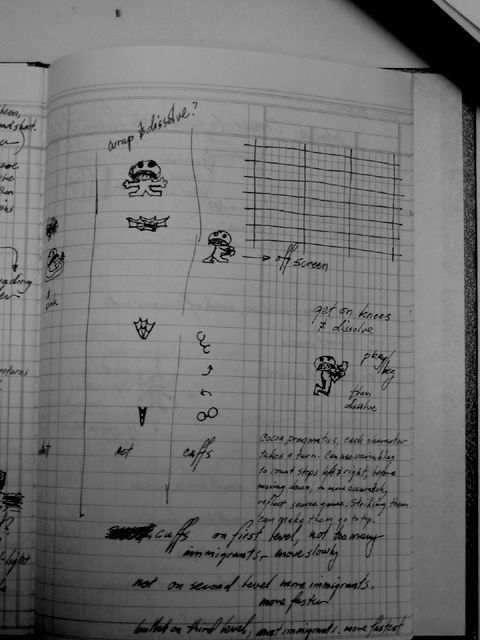 wrap & dissolve?
off screen
get on knees
& dissolve
then
dissolve
net
cuffs
Cocoa pragmatics, each character
takes a turn. Can use variables
to count steps left & right, before
moving down, to more accurately
reflect source game. Striking them
can make them go to top.
cuffs on first level, not too many
immigrants, move slowly
net on second level more immigrants.
move faster
bullet on third level, most immigrants, move fastest